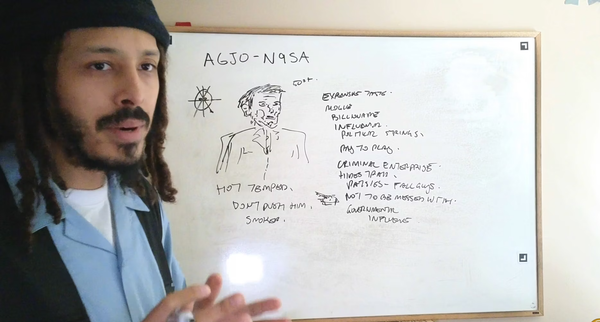 AGJO-N9SA
EXPENSIVE TASTE.
BILLIONAIRE
INFLUENCIAL
POLITICAL STRINGS.
PAY TO PLAY
CRIMINAL ENTERPRISE.
HIDES PAST
PATSIES - FALL GUYS.
NOT TO BE MESSED WITH.
GOVERNMENTAL
INFLUENCE
HOT TEMPERED.
DON'T PUSH HIM.
SMOKER.